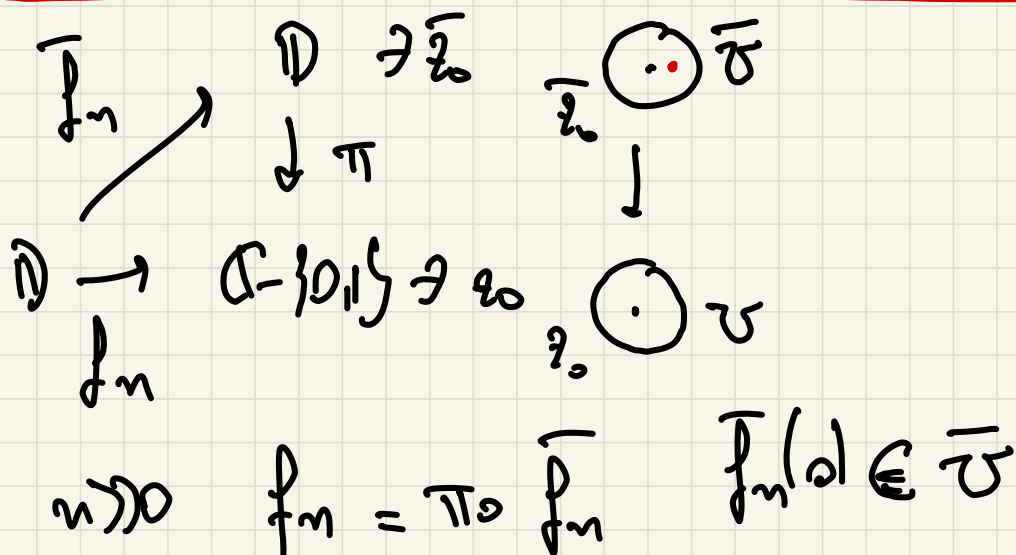 f̄ₙ 𝔻 ∋ z̄₀ z̄₀ Ū
↓ π
𝔻 → ℂ-{0,1} ∋ z₀ z₀ U
fₙ
n>>0 fₙ = π∘f̄ₙ f̄ₙ(0) ∈ Ū